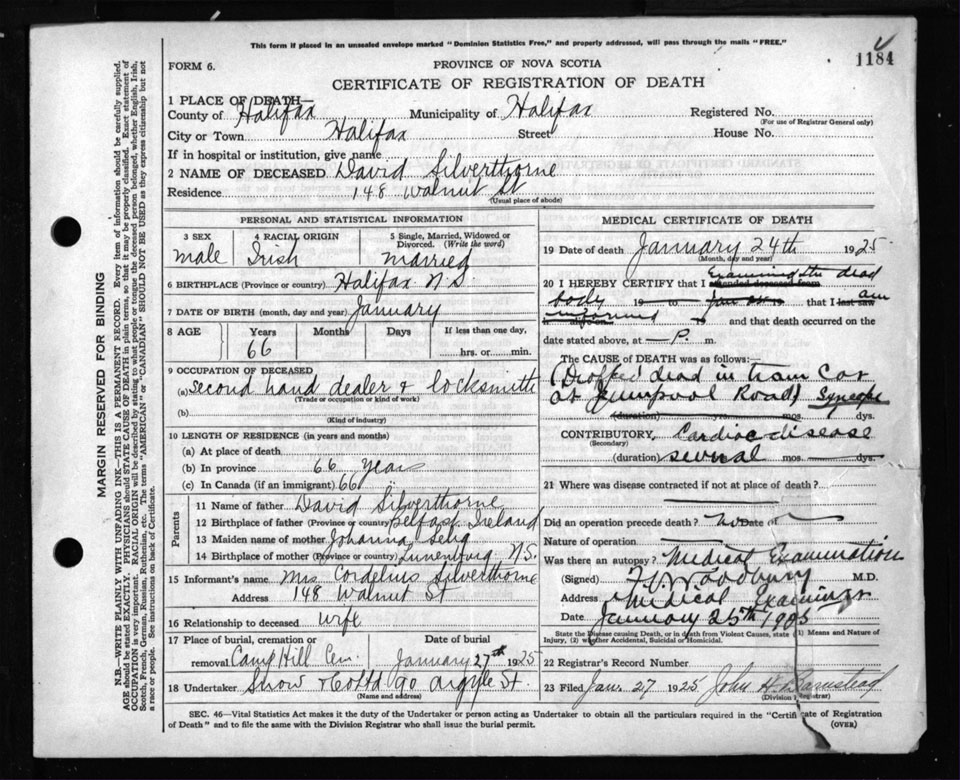 This form if placed in an unsealed envelope marked "Dominion Statistics Free," and properly addressed, will pass through the mails "FREE."
1184
FORM 6.
PROVINCE OF NOVA SCOTIA
CERTIFICATE OF REGISTRATION OF DEATH
1 PLACE OF DEATH—
County of Halifax Municipality of Halifax Registered No.
(For use of Registrar General only)
City or Town Halifax Street House No.
If in hospital or institution, give name
2 NAME OF DECEASED David Silverthorne
Residence 148 Walnut St
(Usual place of abode)
PERSONAL AND STATISTICAL INFORMATION
3 SEX 4 RACIAL ORIGIN 5 Single, Married, Widowed or Divorced. (Write the word)
male Irish married
6 BIRTHPLACE (Province or country) Halifax N S
7 DATE OF BIRTH (month, day and year) January
8 AGE Years Months Days If less than one day,
66 hrs. or min.
9 OCCUPATION OF DECEASED
(a) second hand dealer & locksmith
(Trade or occupation or kind of work)
(b)
(Kind of industry)
10 LENGTH OF RESIDENCE (in years and months)
(a) At place of death
(b) In province 66 years
(c) In Canada (if an immigrant) 66
Parents
11 Name of father David Silverthorne
12 Birthplace of father (Province or country) Belfast Ireland
13 Maiden name of mother Johanna Selig
14 Birthplace of mother (Province or country) Lunenburg N.S.
15 Informant's name Mrs Cordelius Silverthorne
Address 148 Walnut St
16 Relationship to deceased wife
17 Place of burial, cremation or Date of burial
removal Camp Hill Cem. January 27th 1925
18 Undertaker Snow & Co Ltd 90 Argyle St.
(Name and address)
MEDICAL CERTIFICATE OF DEATH
19 Date of death January 24th 1925
(Month, day and year)
Examining the dead
20 I HEREBY CERTIFY that I attended deceased from
body 19 to 19 that I last saw am
informed 19 and that death occurred on the
date stated above, at P. m.
The CAUSE OF DEATH was as follows:
(Dropped dead in tram Car
at Road) Syncope
(duration) yrs. mos. dys.
CONTRIBUTORY, Cardiac disease
(Secondary)
(duration) several mos. dys.
21 Where was disease contracted if not at place of death?
Did an operation precede death? No Date of
Nature of operation
Was there an autopsy? Medical Examination
(Signed) Woodbury M.D.
Address Medical Examiner
Date January 25th 1925
State the Disease causing Death, or in death from Violent Causes, state (1) Means and Nature of
Injury, (2) whether Accidental, Suicidal or Homicidal.
22 Registrar's Record Number
23 Filed Jan. 27 1925 John H. Barnstead
(Division Registrar)
SEC. 46—Vital Statistics Act makes it the duty of the Undertaker or person acting as Undertaker to obtain all the particulars required in the "Certificate of Registration
of Death" and to file the same with the Division Registrar who shall issue the burial permit.
(OVER)
MARGIN RESERVED FOR BINDING
N.B.—WRITE PLAINLY WITH UNFADING INK—THIS IS A PERMANENT RECORD. Every item of information should be carefully supplied.
AGE should be stated EXACTLY. PHYSICIANS should STATE CAUSE OF DEATH in plain terms, so that it may be properly classified. Exact statement of
OCCUPATION is very important. RACIAL ORIGIN will be described by stating to what people or tongue the deceased person belonged, whether English, Irish,
Scotch, French, German, Russian, Ruthenian, etc. The terms "AMERICAN" or "CANADIAN" SHOULD NOT BE USED as they express citizenship but not
a race or people. See instructions on back of Certificate.